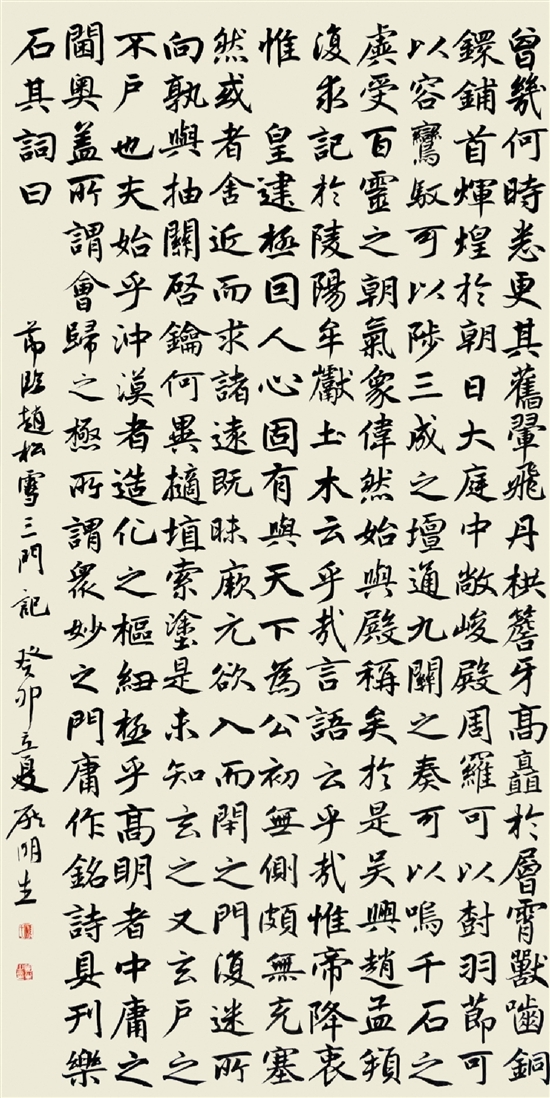 曾幾何時悉更其舊翬飛丹栱簷牙高矗於層霄獸嚙銅
鐶鋪首輝煌於朝日大庭中敞峻殿周羅可以樹羽莭可
以容鸞馭可以陟三成之壇通九關之奏可以鳴千石之
虡受百靈之朝氣象偉然始與殿稱矣於是吴興趙孟頫
復求記於陵陽牟巘土木云乎哉言語云乎哉惟帝降衷
惟 皇建極回人心固有與天下為公初無側頗無充塞
然或者舍近而求諸遠既昧厥元欲入而閇之門復迷所
向孰與抽關啓鑰何異擿埴索塗是未知玄之又玄戶之
不戶也夫始乎沖漠者造化之樞紐極乎高明者中庸之
閫奧蓋所謂會歸之極所謂衆妙之門庸作銘詩具刊樂
石其詞曰
莭臨趙松雪三門記 癸卯立夏 明生